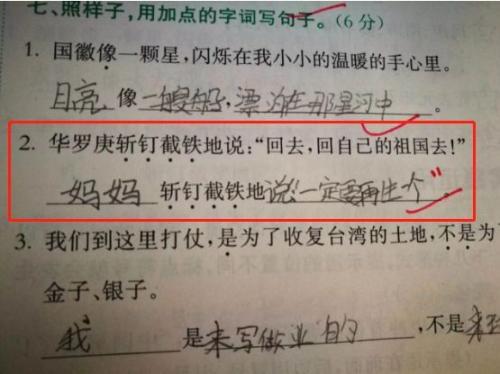 七、照样子,用加点的字词写句子。(6分)
1. 国徽像一颗星,闪烁在我小小的温暖的手心里。
月亮 像 一艘船,漂泊在那星河中 。
2. 华罗庚斩钉截铁地说:“回去,回自己的祖国去!”
妈妈 斩钉截铁地 说:“一定要再生个”
3. 我们到这里打仗,是为了收复台湾的土地,不是为
金子、银子。
我 是 来写做业的 ,不是